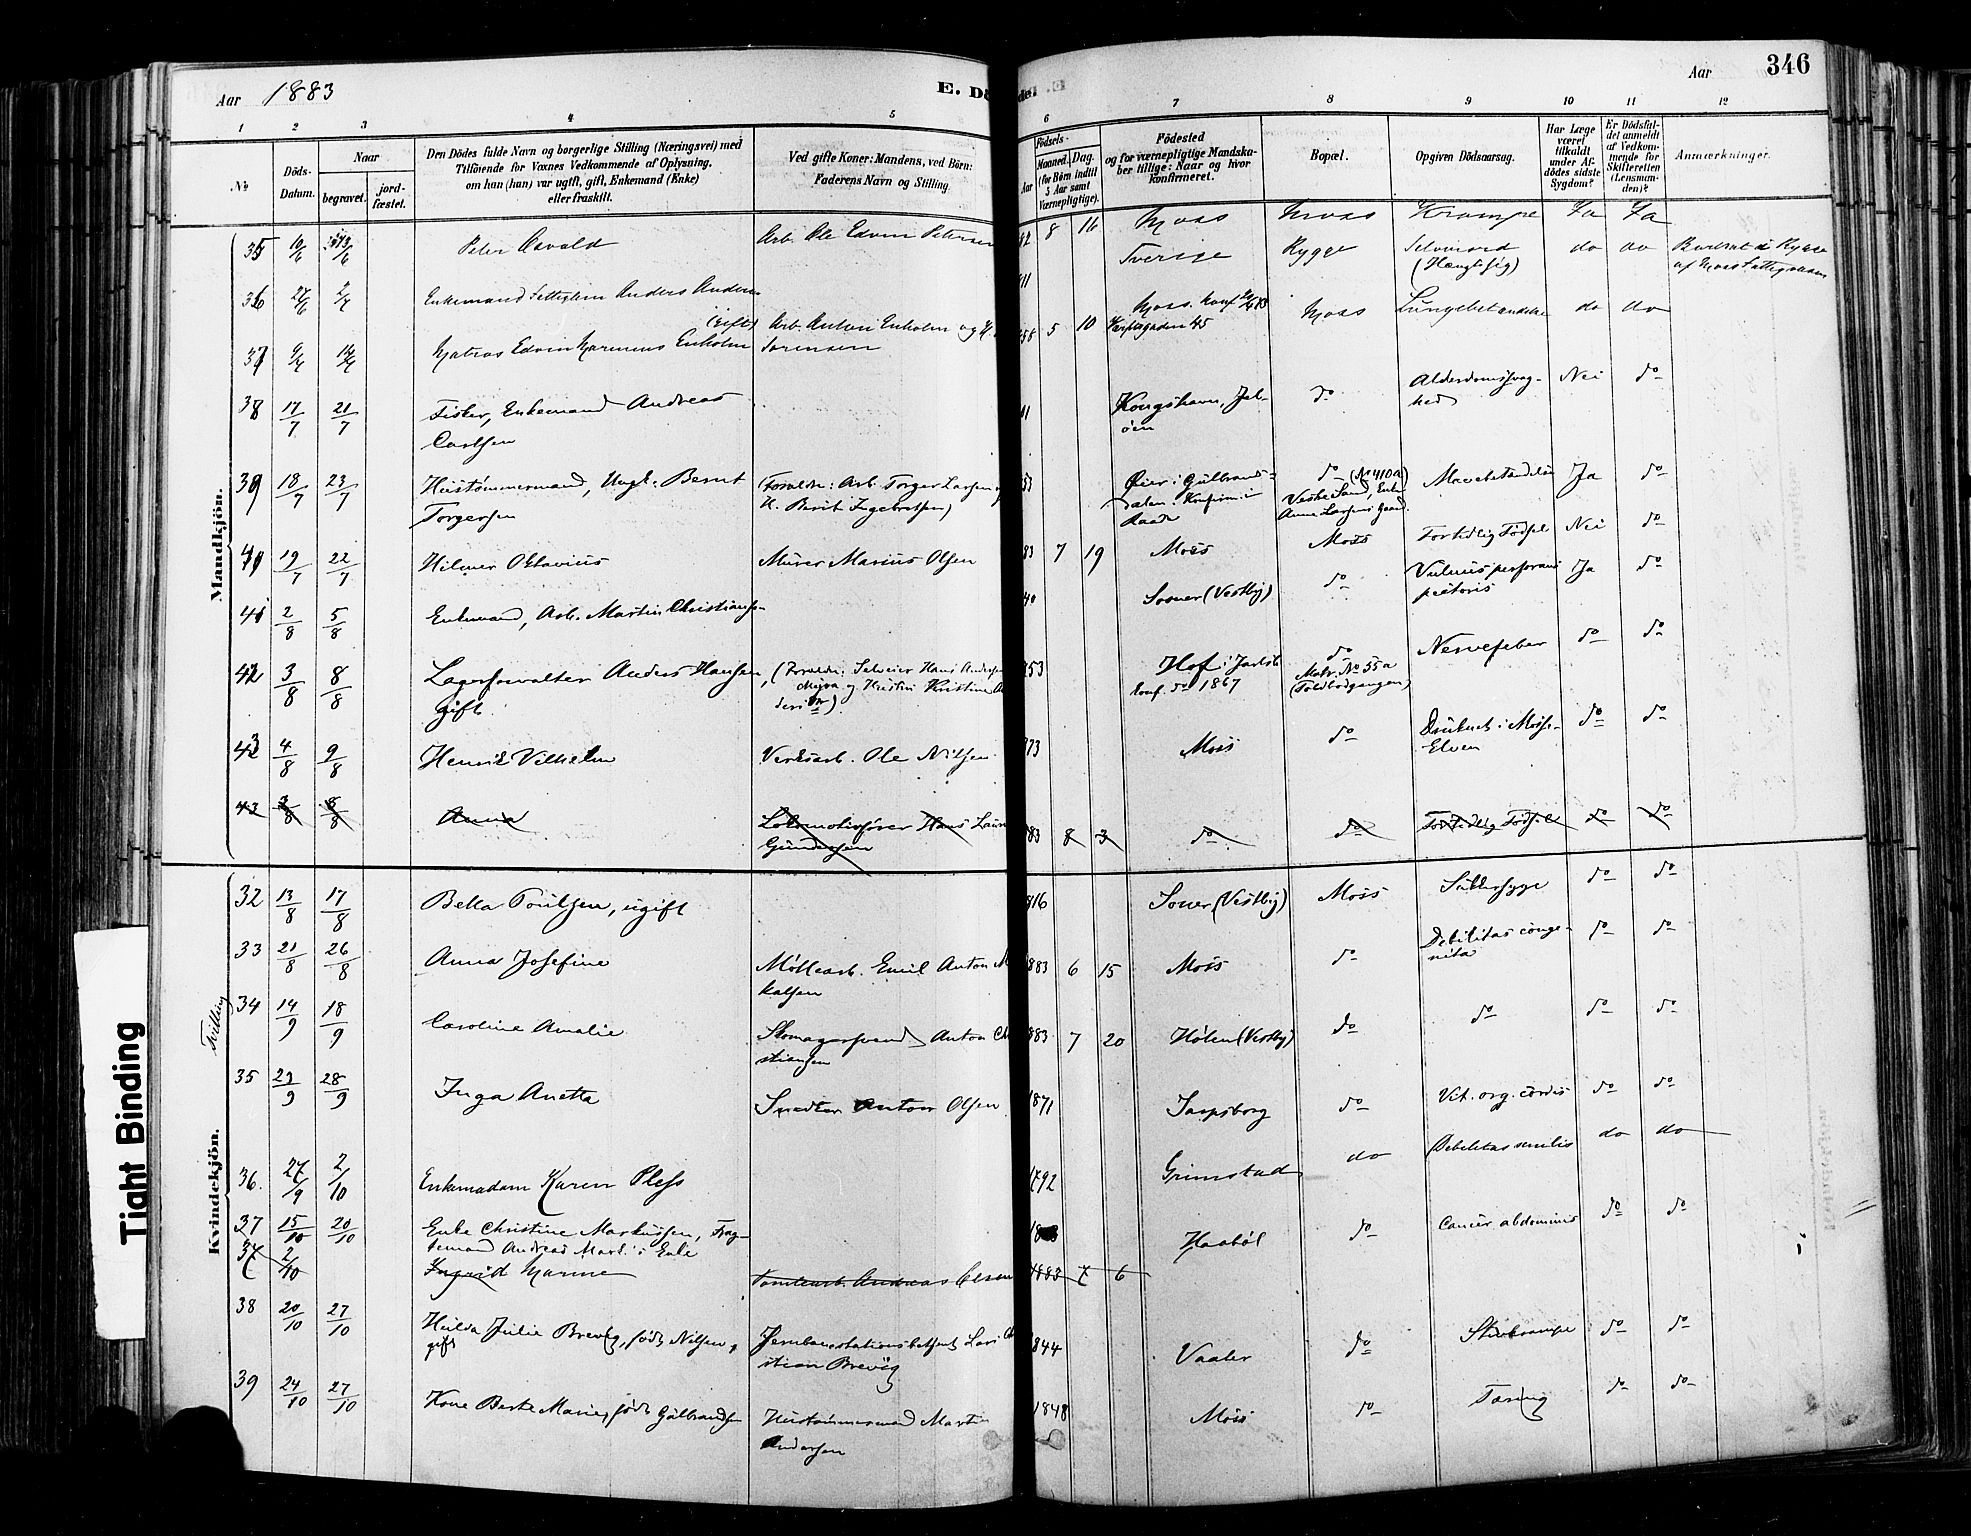 Aar 1883
E. Dö
de.
Aar
346
1 2 3 4 5 6 7 8 9 10 11 12
№
Döds-
Datum.
Naar
begravet.
jord-
fæstet.
Den Dödes fulde Navn og borgerlige Stilling (Næringsvei) med
Tilföiende for Voxnes Vedkommende af Oplysning,
om han (hun) var ugift, gift, Enkemand (Enke)
eller fraskilt.
Ved gifte Koner: Mandens, ved Börn:
Faderens Navn og Stilling.
Födsels-
Aar
Maaned. Dag.
(for Börn indtil
5 Aar samt
Værnepligtige).
Födested
og for værnepligtige Mandska-
ber tillige: Naar og hvor
konfirmeret.
Bopæl.
Opgiven Dödsaarsag.
Har Læge
været
tilkaldt
under Af-
dödes sidste
Sygdom?
Er Dödsfal-
det anmeldt
af Vedkom-
mende for
Skifteretten
(Lensman-
den)?
Anmærkninger.
Mandkjön.
35 10/6 Peter Osvald Arb. Ole Edvin Petersen 82 8 16 Moss Moss Krampe Ja Ja
36 27/6 2/7 Enkemand Fattiglem Anders Anders 11 Sverige Rygge Selvmord
(Hængt sig) do do Bortsat i Rygge
af Moss Fattigvæsen
37 Matros Edvin Marinius Enholm
(gift) Arb. Anton Enholm og H.
Sorensen 58 5 10 Moss. Konf.
Moss Lungebetændelse do do
38 17/7 21/7 Fisker, Enkemand Andreas
Carlsen 11 Kongshavn, Jel-
öen do Alderdomssvag-
hed Nei do
39 18/7 23/7 Hustømmermand, Ungk. Bernt
Torgersen (Forældre: Arb. Torger Larsen og
H. Berit Ingebretsen) 53 Øier i Gulbrands-
dalen. Konfirm. i
Raade do (No 410a)
Verke Sand, Enke
Anne Larsens Gaard. Mavebetændelse Ja do
40 19/7 22/7 Hilmer Oktavius Murer Marius Olsen 83 7 19 Moss Moss Fortidlig Födsel Nei do
41 2/8 5/8 Enkemand, Arb. Martin Christians- 40 Soner (Vestby) do Vulnus perforans
pectoris Ja do
42 3/8 8/8 Lagerforvalter Anders Hansen,
gift. (Forældre: Selveier Hans Andersen
og Hustru Kristine 53 Hof i Jarlsb.
konf. do 1867 do
Matr. No 55a
(Toldbodgangen) Nervefeber do do
43 4/8 9/8 Henrik Vilhelm Verksarb. Ole Nilsen 73 Moss do Druknet i Mosse-
Elven do do
43 3/8 8/8 Anna Lokomotivfører Hans Laur
Gundersen 83 8 3 do do Fortidlig Födsel do do
Kvindekjön.
32 13/8 17/8 Bella Poulsen, ugift 816 Soner (Vestby) Moss Sukkersyge do do
33 21/8 26/8 Anna Josefine Møllearb. Emil Anton M
kalsen 883 6 15 Moss do Debilitas conge-
nita do do
Tvilling
34 14/9 18/9 Caroline Amalie Skomagersvend Anton Ch
stiansen 883 7 20 Hölen (Vestby) do do do do
35 23/9 28/9 Inga Anetta Snedker Anton Olsen 1871 Sarpsborg do Vit. org. cordis do do
36. 27/9 2/10 Enkemadam Karen Pless 1792 Grimstad do Debilitas senilis do do
37 15/10 20/10 Enke Christine Markussen, Frag-
temand Andreas Mark. s Enke Haaböl do Cancer abdominis do do
37 2/10 Ingrid Marine Tomtearb. Andreas Olsen 1883 7 6
38 20/10 27/10 Hulda Julie Brevig, født Nilsen,
gift Jernbanestationsbetjent Lars Ch
stian Brevig 1844 Vaaler do Strubkrampe do do
39 24/10 27/10 Kone Berte Marie, født Gulbrandsen Hustømmermand Martin
Andersen 1848 Moss do Tæring do do
Tight Binding